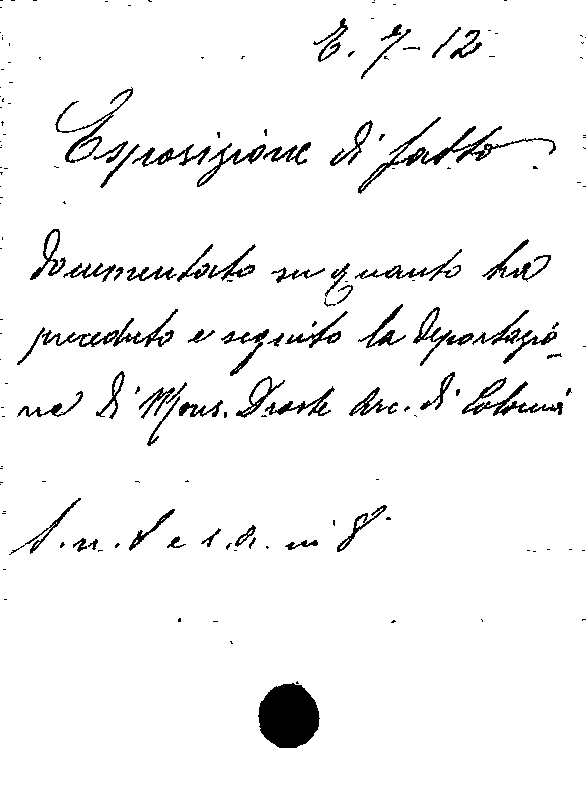 E. 7-12
Esposizione di fatto
documentato su quanto ha
preceduto e seguito la deportazio-
ne di Mons. Droste Arc. di Colonia
S. n. t e s. a. in 8°